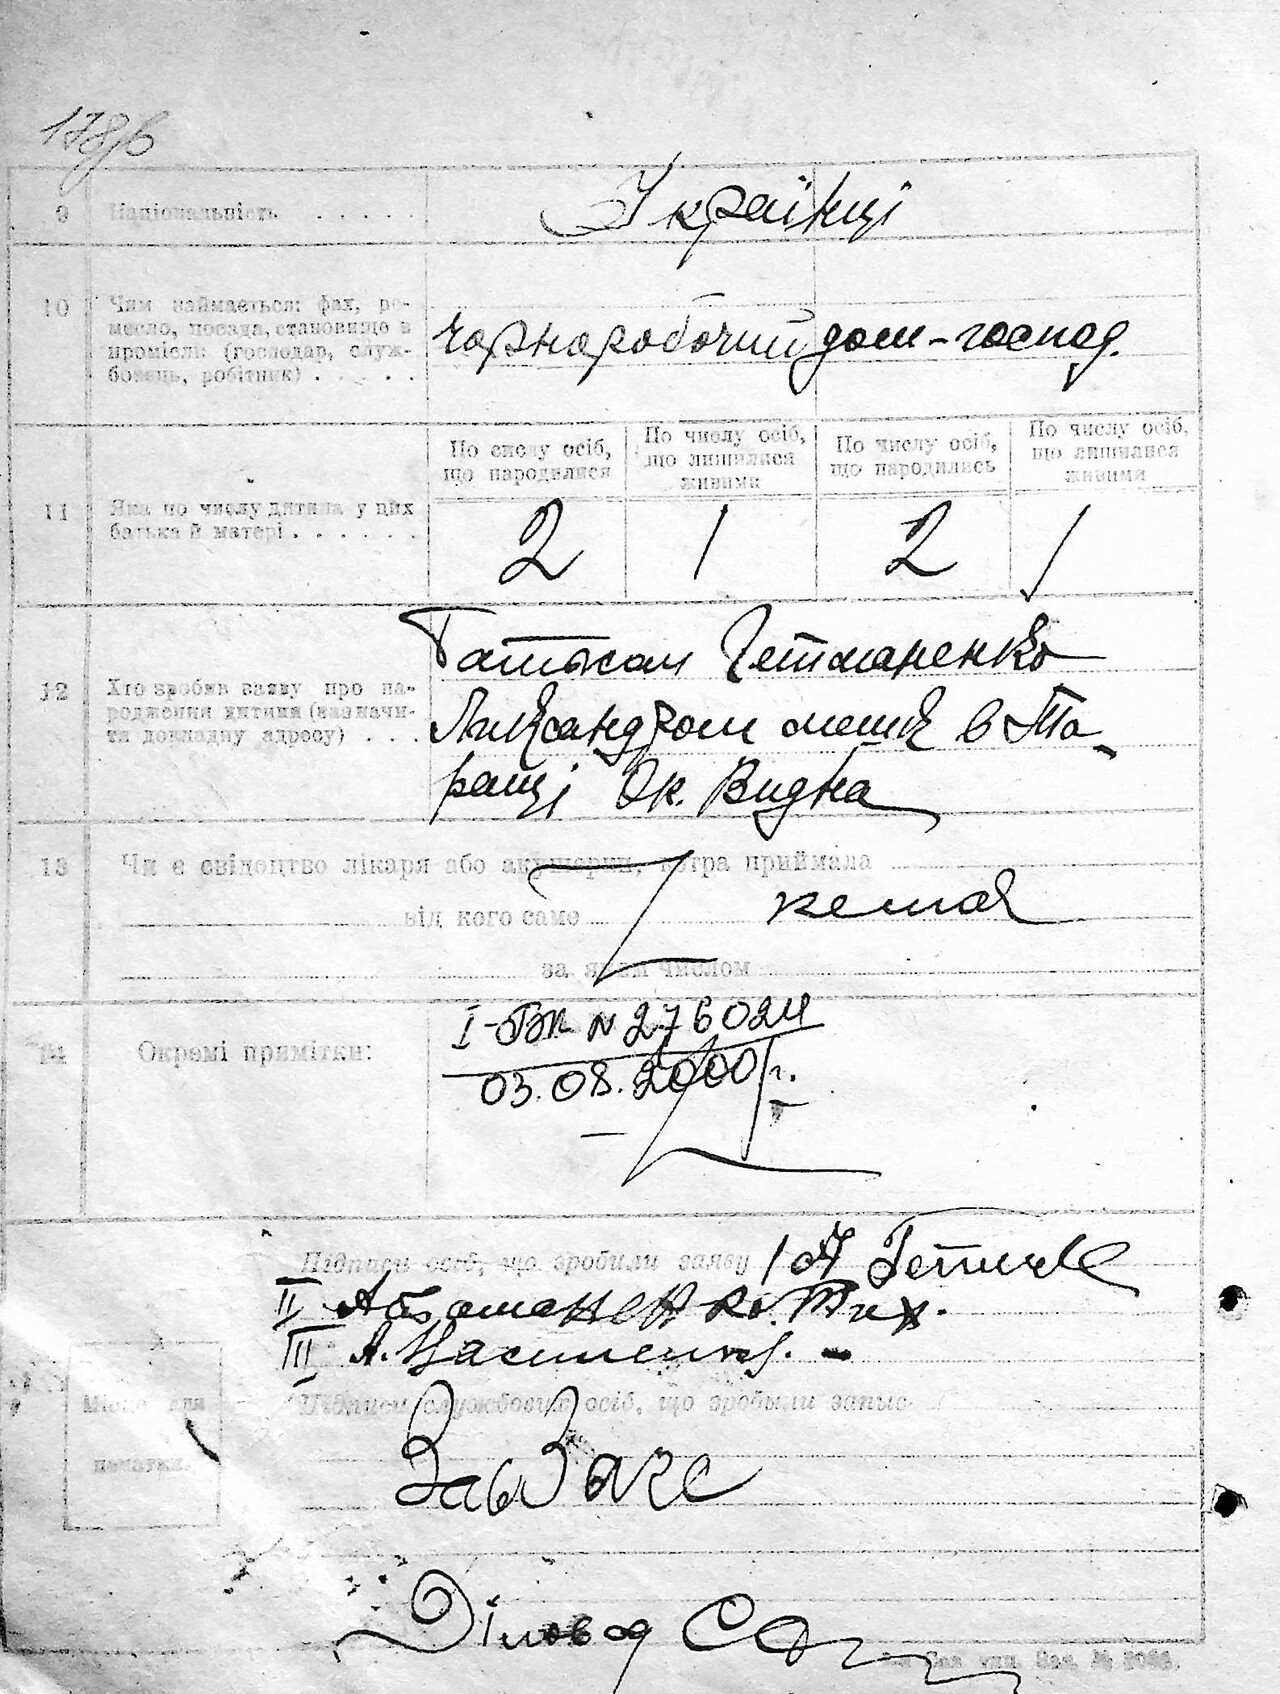 178/б
9 Національність . . . . . Українці
10 Чим займається: фах, ре-
месло, посада, становище в
промислі: (господар, служ-
бовець, робітник) . . . . .
Чорноробочий дом-господ.
По числу осіб, що народилися
По числу осіб, що лишилися живими
По числу осіб, що народились
По числу осіб, що лишилися живими
11 Яка по числу дитина у цих
батька й матері . . . . . .
2 1 2 1
12 Хто зробив заяву про на-
родження дитини (визначи-
ти докладну адресу) . . .
Батьком Гетманенко
Александром мешк в Та-
ращі Ок. Видна
13 Чи є свідоцтво лікаря або акушерки, котра приймала
від кого саме немає
за яким числом
14 Окремі примітки:
I-БК N 276024
03.08.2000 г.
Підписи осіб, що зробили заяву 1 А
II Тих.
III А.
Місце для
печатки.
Підписи службових осіб, що зробили запис
ЗавЗагс
Діловод